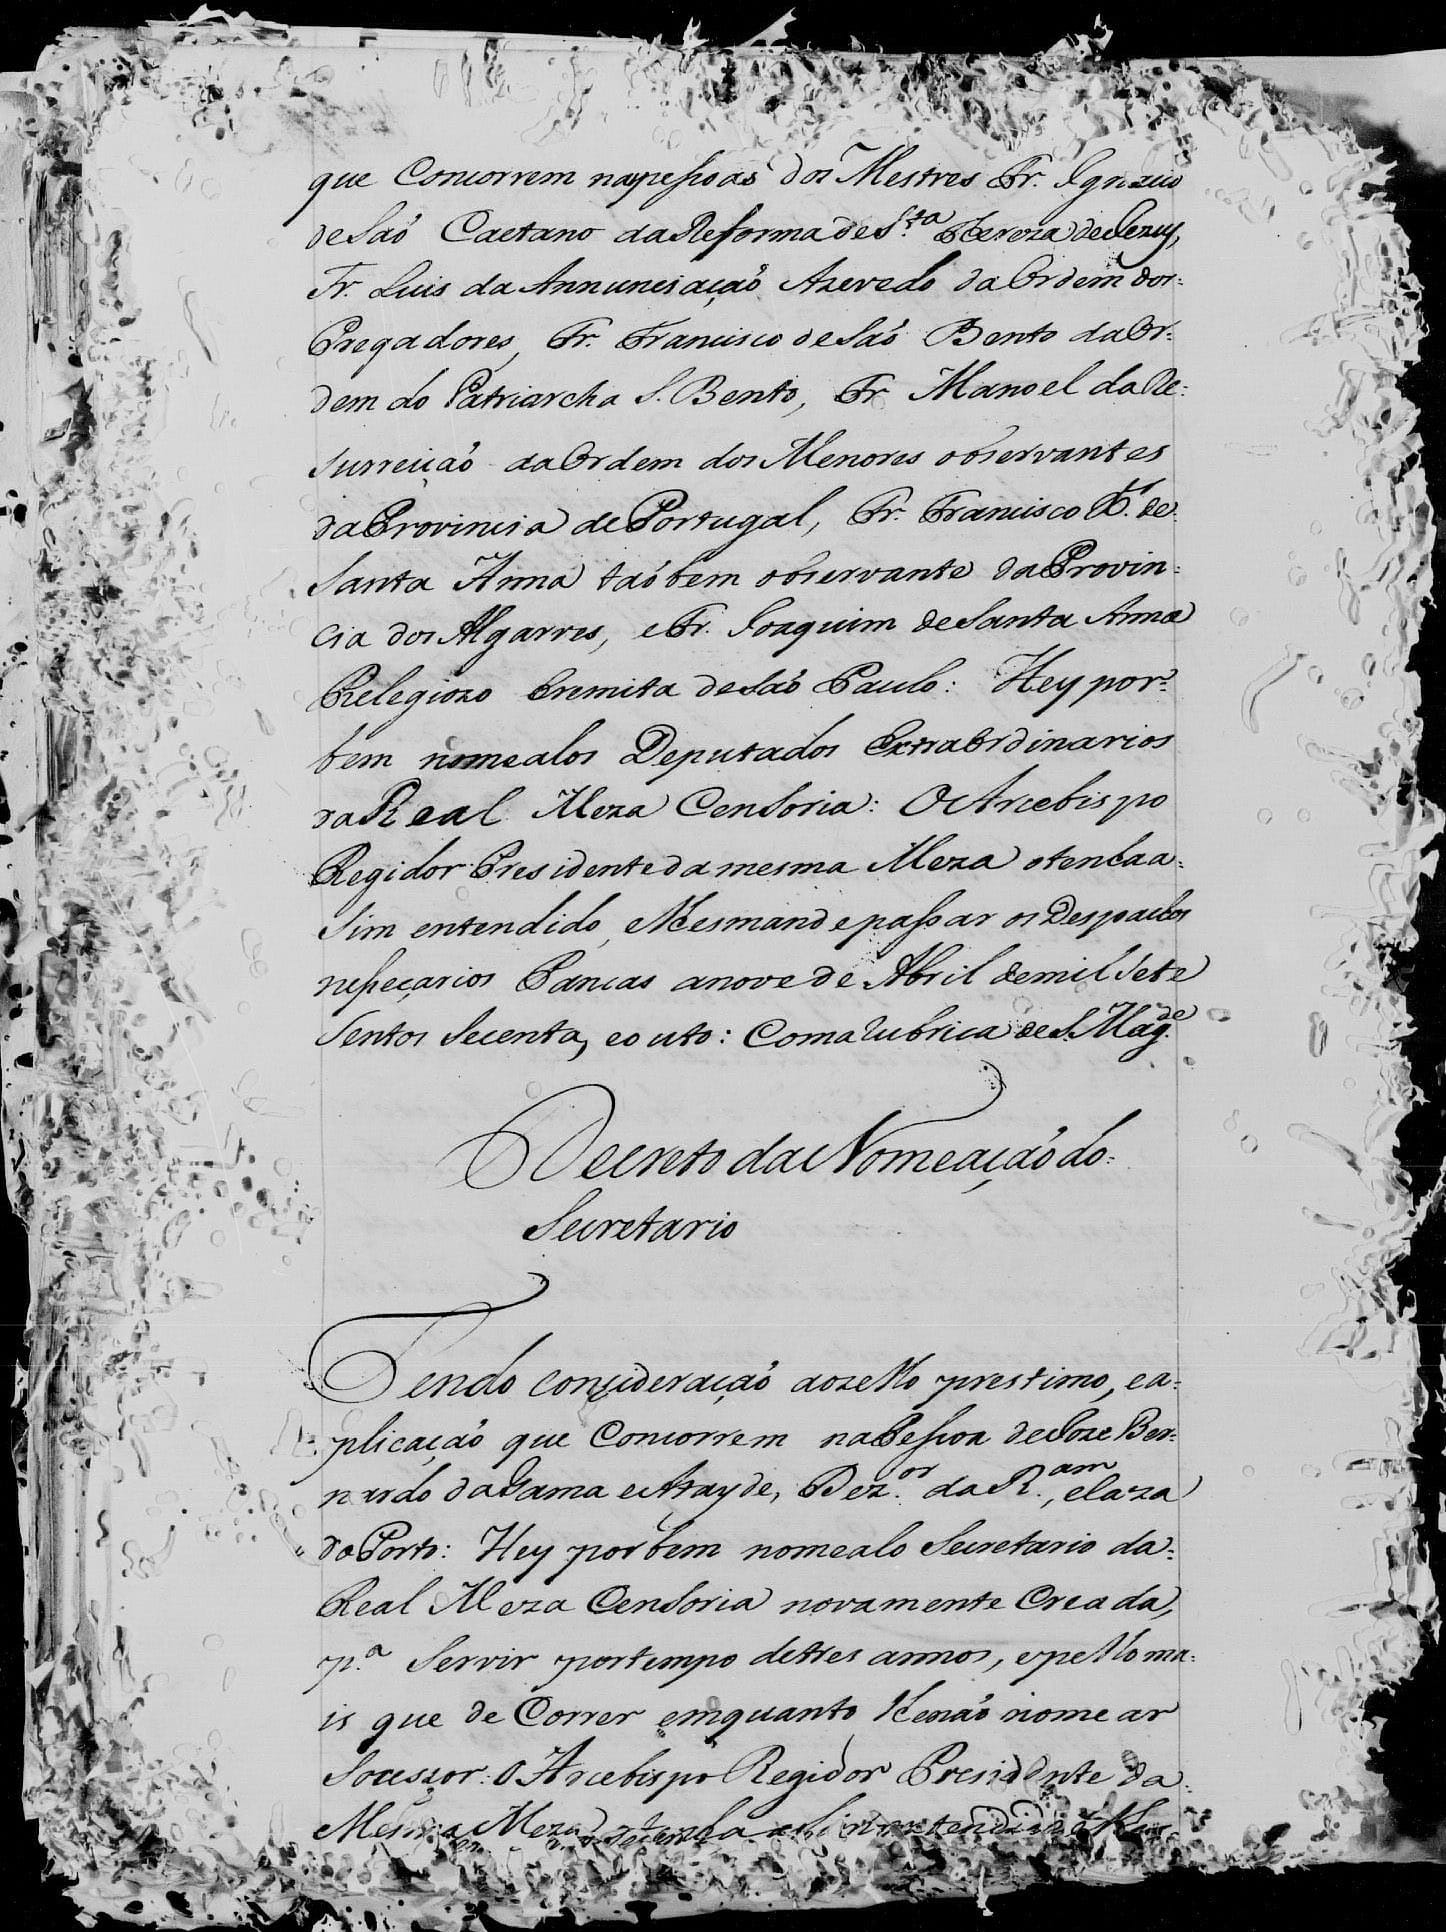 que Concorrem nas pessoas dos Mestres Fr. Ignacio
de São Caetano da Reforma de S.ta Tereza de Jezus,
Fr. Luis da Annunciação Azevedo da Ordem dos
Pregadores, Fr. Francisco de São Bento da Or-
dem do Patriarcha S. Bento, Fr. Manoel da Re-
surreição da Ordem dos Menores observantes
da Provincia de Portugal, Fr. Francisco X.er de
Santa Anna taóbem observante da Provin-
cia dos Algarves, e Fr. Joaquim de Santa Anna
Relegiozo Eremita de São Paulo: Hey por
bem nomealos Deputados Extraordinarios
da Real Meza Censoria: O Arcebispo
Regidor Presidente da mesma Meza o tenha a-
sim entendido, e lhes mande passar os Despachos
nesseçarios Pancas a nove de Abril de mil sete
sentos secenta, e outo: Coma Rubrica de S. Mag.de
Decreto da Nomeação do
Secretario
Tendo conçideração ao zello prestimo, e a-
plicação que Concorrem na Pessoa de Joze Ber-
nardo da Gama e Atayde, Dez.or da R.am, e Caza
do Porto: Hey por bem nomealo Secretario da
Real Meza Censoria novamente Creada,
p.a Servir por tempo de tres annos, e pello ma-
is que de Correr emquanto lhe não nomear
Socessor: O Arcebispo Regidor Presidente da
Mesma Meza o tenha asim entendido